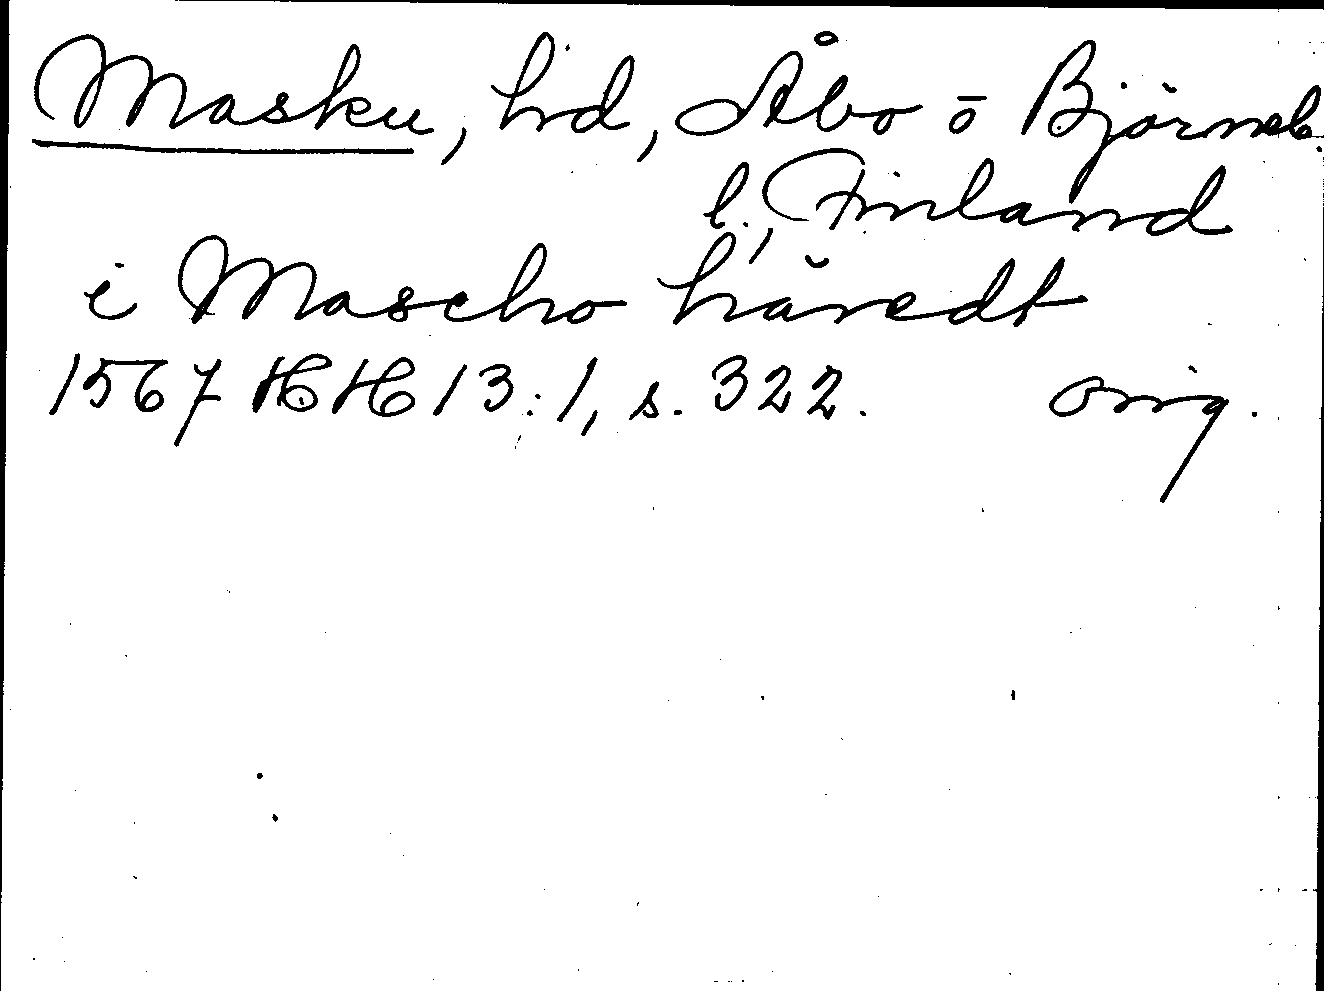 Masku, hd, Åbo o Björneb.
l., Finland
i Mascho hăredt
1567 HH 13:1, s. 322. orig.